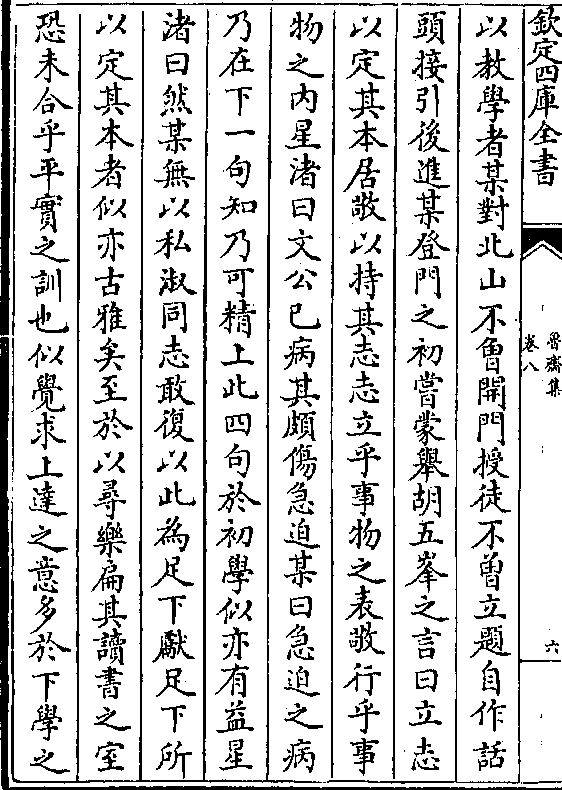 欽定四庫全書
魯齋集
卷八
六
以教學者某對北山不曾開門授徒不曾立題自作話
頭接引後進某登門之初嘗蒙舉胡五峯之言曰立志
以定其本居敬以持其志志立乎事物之表敬行乎事
物之内星渚曰文公已病其頗傷急迫某曰急迫之病
乃在下一句知乃可精上此四句於初學似亦有益星
渚曰然某無以私淑同志敢復以此為足下獻足下所
以定其本者似亦古雅矣至於以尋樂扁其讀書之室
恐未合乎平實之訓也似覺求上達之意多於下學之